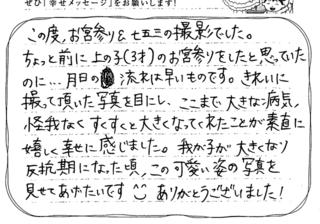 ぜひ「幸せメッセージ」をお願いします!
この度、お宮参り&七五三の撮影でした。
ちょっと前に上の子(3才)のお宮参りをしたと思っていた
のに…月日の流れは早いものです。きれいに
撮って頂いた写真を目にし、ここまで大きな病気、
怪我なくすくすくと大きくなってくれたことが素直に
嬉しく幸せに感じました。我が子が大きくなり
反抗期になった頃、この可愛い姿の写真を
見せてあげたいです ありがとうございました!